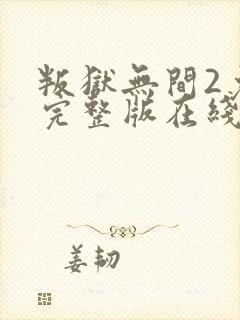 叛獄無間2
完整版在綫
姜韌